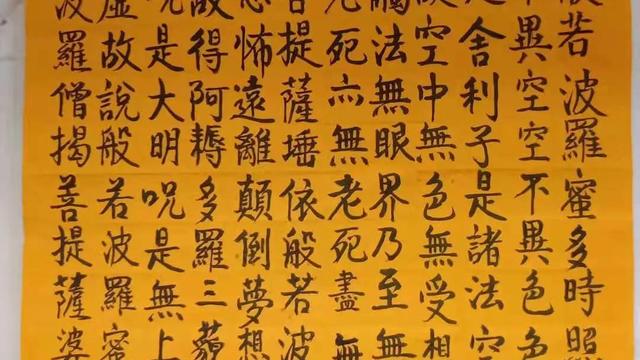 般若波羅蜜多時照
不異空空不異色色
舍利子是諸法空
空中無色無受
觸法無眼界乃至無
死亦無老死盡無
提薩埵依般若波
怖遠離顛倒夢想
故得阿耨多羅三藐
呪是大明呪是無上
虛故說般若波羅蜜
波羅僧揭菩提薩婆